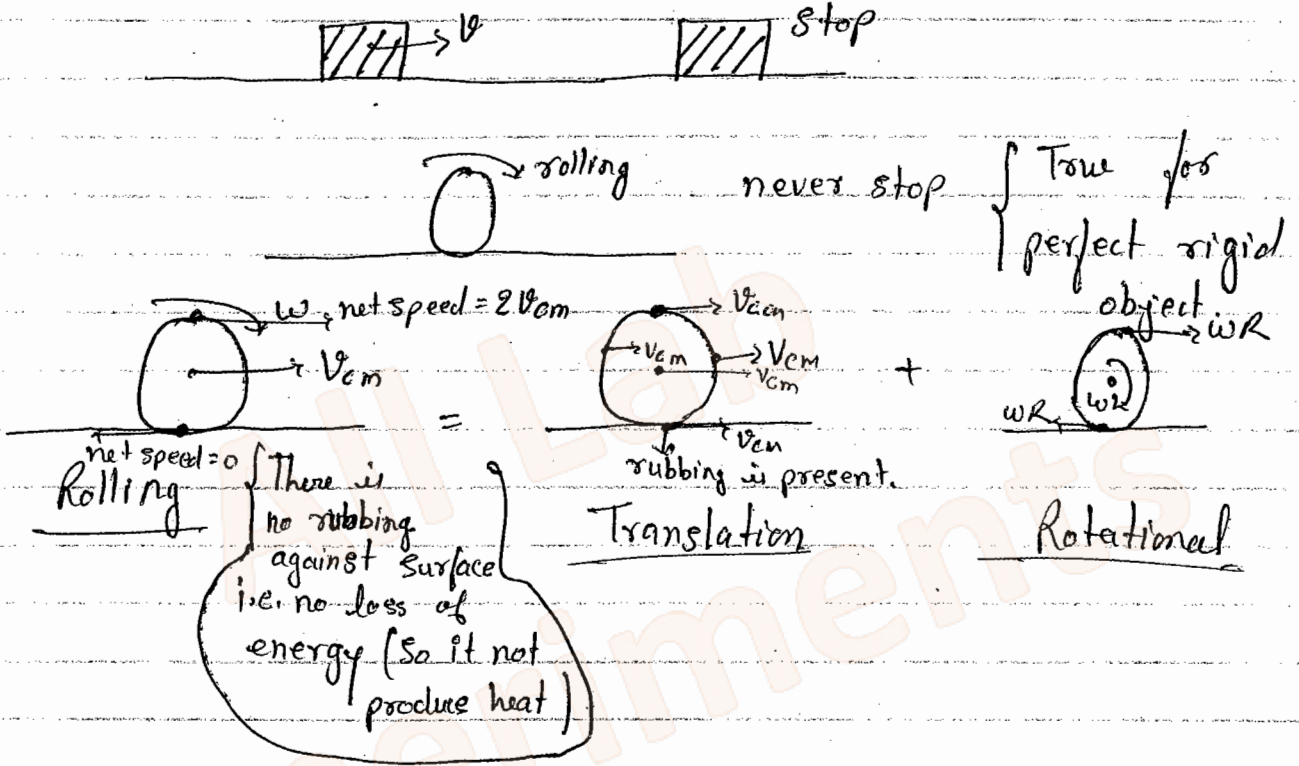 v
Stop
rolling
never stop { True for
perfect rigid
object
ω net speed = 2Vcm
Vcm
net speed = 0
Rolling
{ There is
no rubbing
against surface
i.e. no loss of
energy (So it not
produce heat)
=
Vcm
Vcm
VCM
Vcm
Vcm
rubbing is present.
Translation
+
ωR
ωR
ωR
Rotational
All Lab
eriments